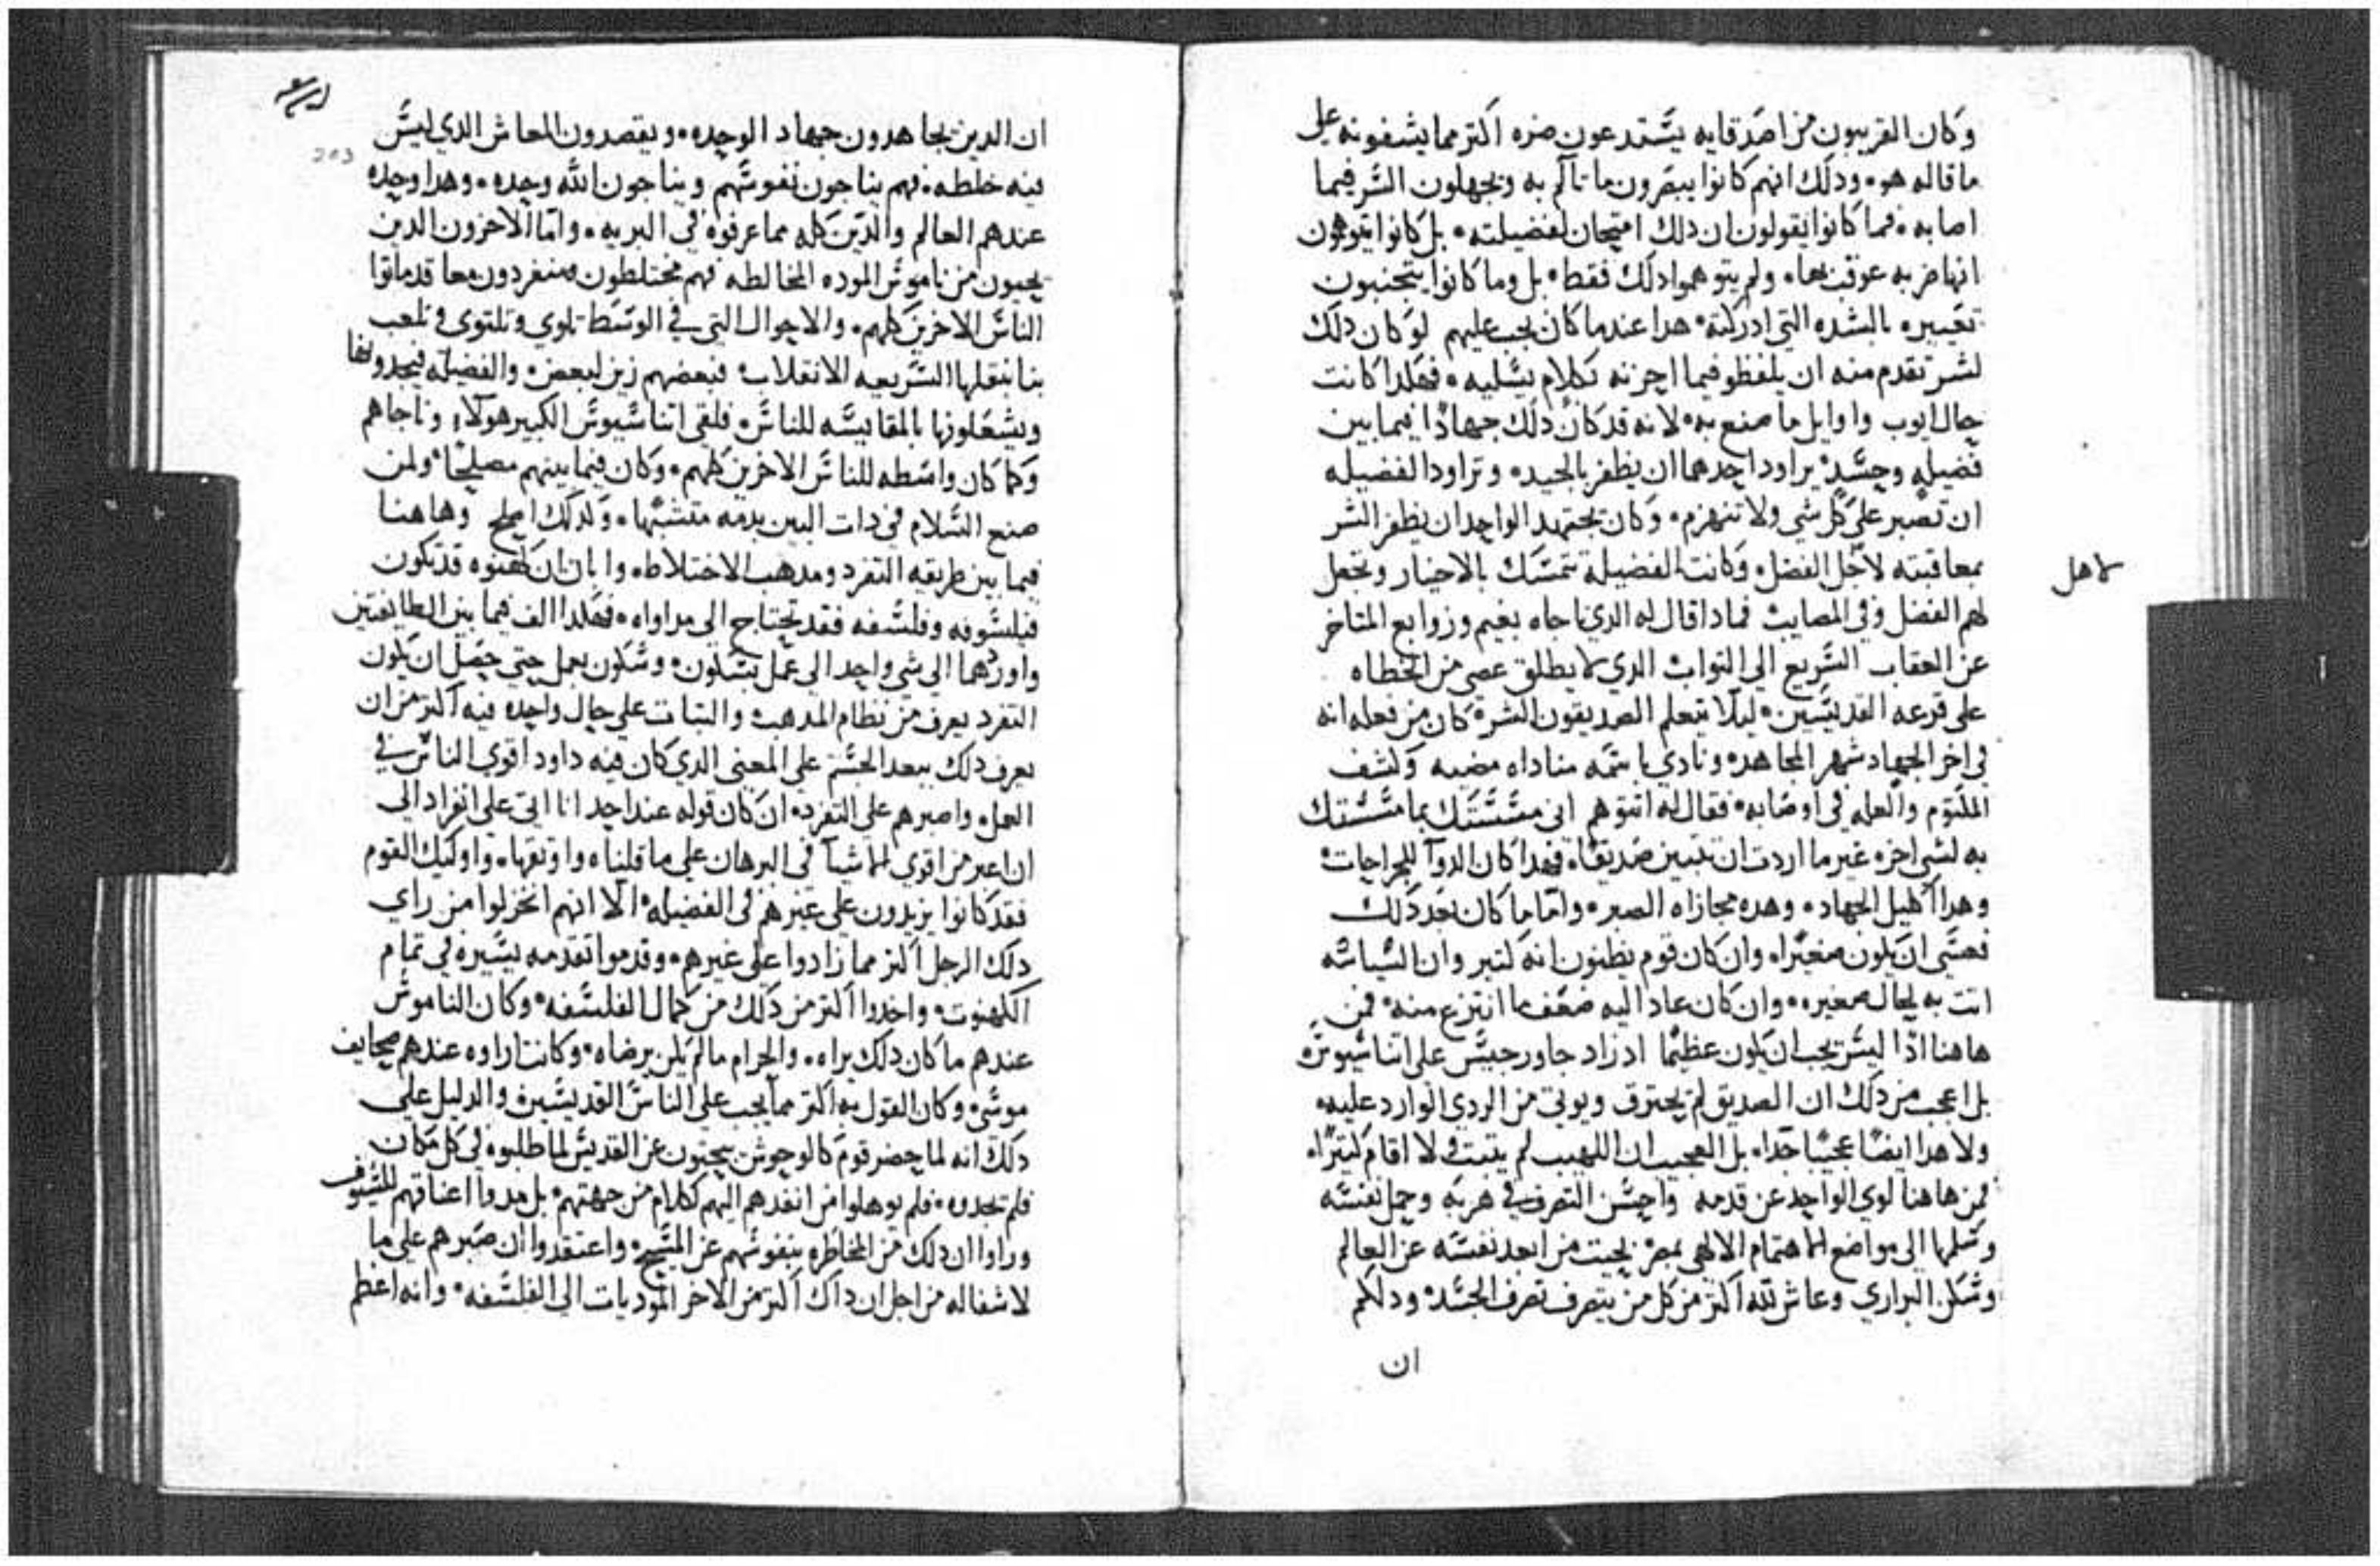 وكان القريبون من اصدقايه يستدعون ضره اكتر مما يشفونه على
ما قاله هو، ودلك انهم كانوا يبصرون ما تالم به ويجهلون الشر فيما
اصابه، فما كانوا يقولون ان دلك امتحان لفضيلته، بل كانوا يتوهمون
انها ضربه عوقب بها، ولم يتوهموا دلك فقط، بل وما كانوا يتجنبون
تعييره بالشده التي ادركته، هدا عندما كان يجب عليهم لو كان دلك
لشر تقدم منه ان يلفظو فيما احزنه بكلام يسليه، فهكدا كانت
حال ايوب واوايل ما صنع به، لانه قد كان دلك جهادًا فيما بين
فضيله وحسد، يراود احدهما ان يظفر بالجيد، وتراود الفضيله
ان تصبر على كل شي ولا تنهزم، وكان يجتهد الواحد ان يظفر الشر
بمعاقبته لاجل الفضل، وكانت الفضيله تتمسك بالاخيار وتجعل
لاهل
لهم الفضل وفي المصايب فمادا قال له الدي ناجاه بغيم وزوابع المتاخر
عن العقاب السريع الى التواب الدي لا يطلق عصى من الخطاه
على قرعه القديسين، ليلا يتعلم الصديقون الشر، كان من فعله انه
في اخر الجهاد شهر المجاهد، ونادي باسمه مناداه مضيه وكشف
المكتوم والعله في اوصابه، فقال له اتتوهم انى
به لشي اخر، غير ما اردت ان تبين صديقًا، فهدا كان الدوآ للجراحات
وهدا اكليل الجهاد، وهده مجازاه الصبر، واما ما كان بعد دلك
فعسى ان يكون صغيرًا، وان كان قوم يظنون انه كتير وان السياسه
اتت به لحال صغيره، وان كان عاد اليه ضعف ما انتزع منه، فمن
هاهنا ادًا ليس يجب ان يكون عظيمًا اد زاد جاورجيس على اتناسيوس
بل اعجب من دلك ان الصديق لم يحترق ويوتى من الردي الوارد عليه
ولا هدا ايضًا عجيبًا جدا، بل العجيب ان اللهيب لم يتبت ولا اقام كتيرًا،
فمن هاهنا لوي الواحد عن قدمه واحسن التصرف في هربه وحمل نفسه
وسلمها الى مواضع الاهتمام الالاهي بمصر بحيت من ابعد نفسه عن العالم
وسكن البراري وعاش لله اكتر من كل من يتصرف تصرف الجسد، ودلكم
ان
203
ان الدين يجاهدون جهاد الوحده، ويقصدون المعاش الدي ليس
فيه خلطه، فهم يناجون نفوسهم ويناجون الله وحده، وهدا وحده
عندهم العالم والدين كله مما عرفوه في البريه، واما الاخرون الدين
يحبون من ناموس الموده المخالطه فهم مختلطون ومنفردون معا قد ماتوا
الناس الاخرين كلهم، والاحوال التي في الوسط تلوي وتلتوي وتلعب
بنا بنقلها السريعه الانقلاب فبعضهم زين لبعض، والفضيله
ويشعلونها بالمقايسه للناس، فلقي اتناسيوس الكبير هولاء وناجاهم
وكما كان واسطه للناس الاخرين كلهم، وكان فيما بينهم مصلحًا، ولمن
صنع السلام في دات البين بدمه متشبهًا، وكدلك اصلح وهاهنا
فيما بين طريقه التفرد ومدهب الاختلاط، وابان ان كهنوه قد تكون
فيلسوفه وفلسفه فقد تحتاج الى مداواه، فهكدا الف فيما بين الطايفتين
واوردهما الى شي واحد الى عمل بسكون، وسكون بعمل حتى حصل ان يكون
التفرد يعرف من نظام المدهب والتبات على حال واحده فيه اكتر من ان
يعرف دلك ببعد الجسم على المعنى الدي كان فيه داود اقوي الناس في
العمل، واصبرهم على التفرد، ان كان قوله عند احد انا اتي على انفراد الى
ان اعبر من اقوي الاشيآ في البرهان على ما قلناه واوتقها، واوليك القوم
فقد كانوا يزيدون على غيرهم في الفضيله، الا انهم انخزلوا من راي
دلك الرجل اكتر مما زادوا على غيرهم، وقدموا تقدمه يسيره في تمام
الكهنوت، واخدوا اكتر من دلك من كمال الفلسفه، وكان الناموس
عندهم ما كان دلك يراه، والحرام مالم يكن برضاه، وكانت اراوه عندهم صحايف
موسى، وكان القول به اكتر مما يجب على الناس القديسين، والدليل على
دلك انه لما حضر قوم كالوحوش يبحتون عن القديس لما طلبوه في كل مكان
فلم تجده، فلم يوهلوا من انفدهم اليهم كلام من جهتهم، بل مدوا اعناقهم للسيوف
وراوا ان دلك من المخاطره بنفوسهم عن المسيح، واعتقدوا ان صبرهم على ما
لاشفاله من اجل ان داك اكتر من الاخر الموديات الى الفلسفه، وانه اعظم